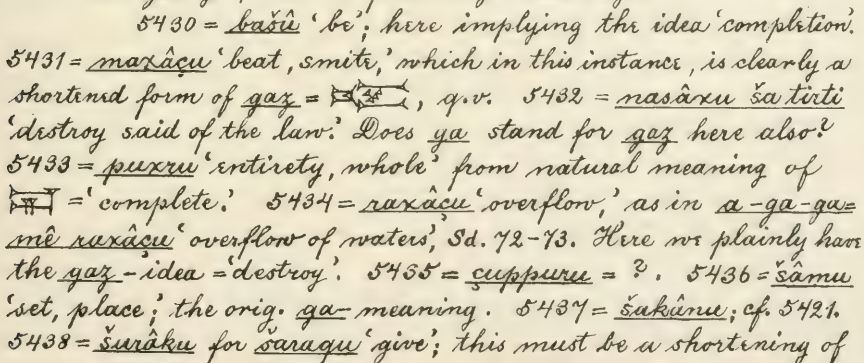 5430 = bašû 'be'; here implying the idea 'completion'.
5431 = maxâçu 'beat, smite,' which in this instance, is clearly a
shortened form of gaz = , q.v. 5432 = nasâxu ša tirti
'destroy said of the law.' Does ga stand for gaz here also?
5433 = puxru 'entirety, whole' from natural meaning of
= 'complete.' 5434 = raxâçu 'overflow,' as in a-ga-ga=
mê raxâçu 'overflow of waters', Sd. 72-73. Here we plainly have
the gaz-idea = 'destroy'. 5435 = çuppuru = ?. 5436 = šâmu
'set, place;' the orig. ga- meaning. 5437 = šakânu; cf. 5421.
5438 = šurâku for šaraqu 'give'; this must be a shortening of